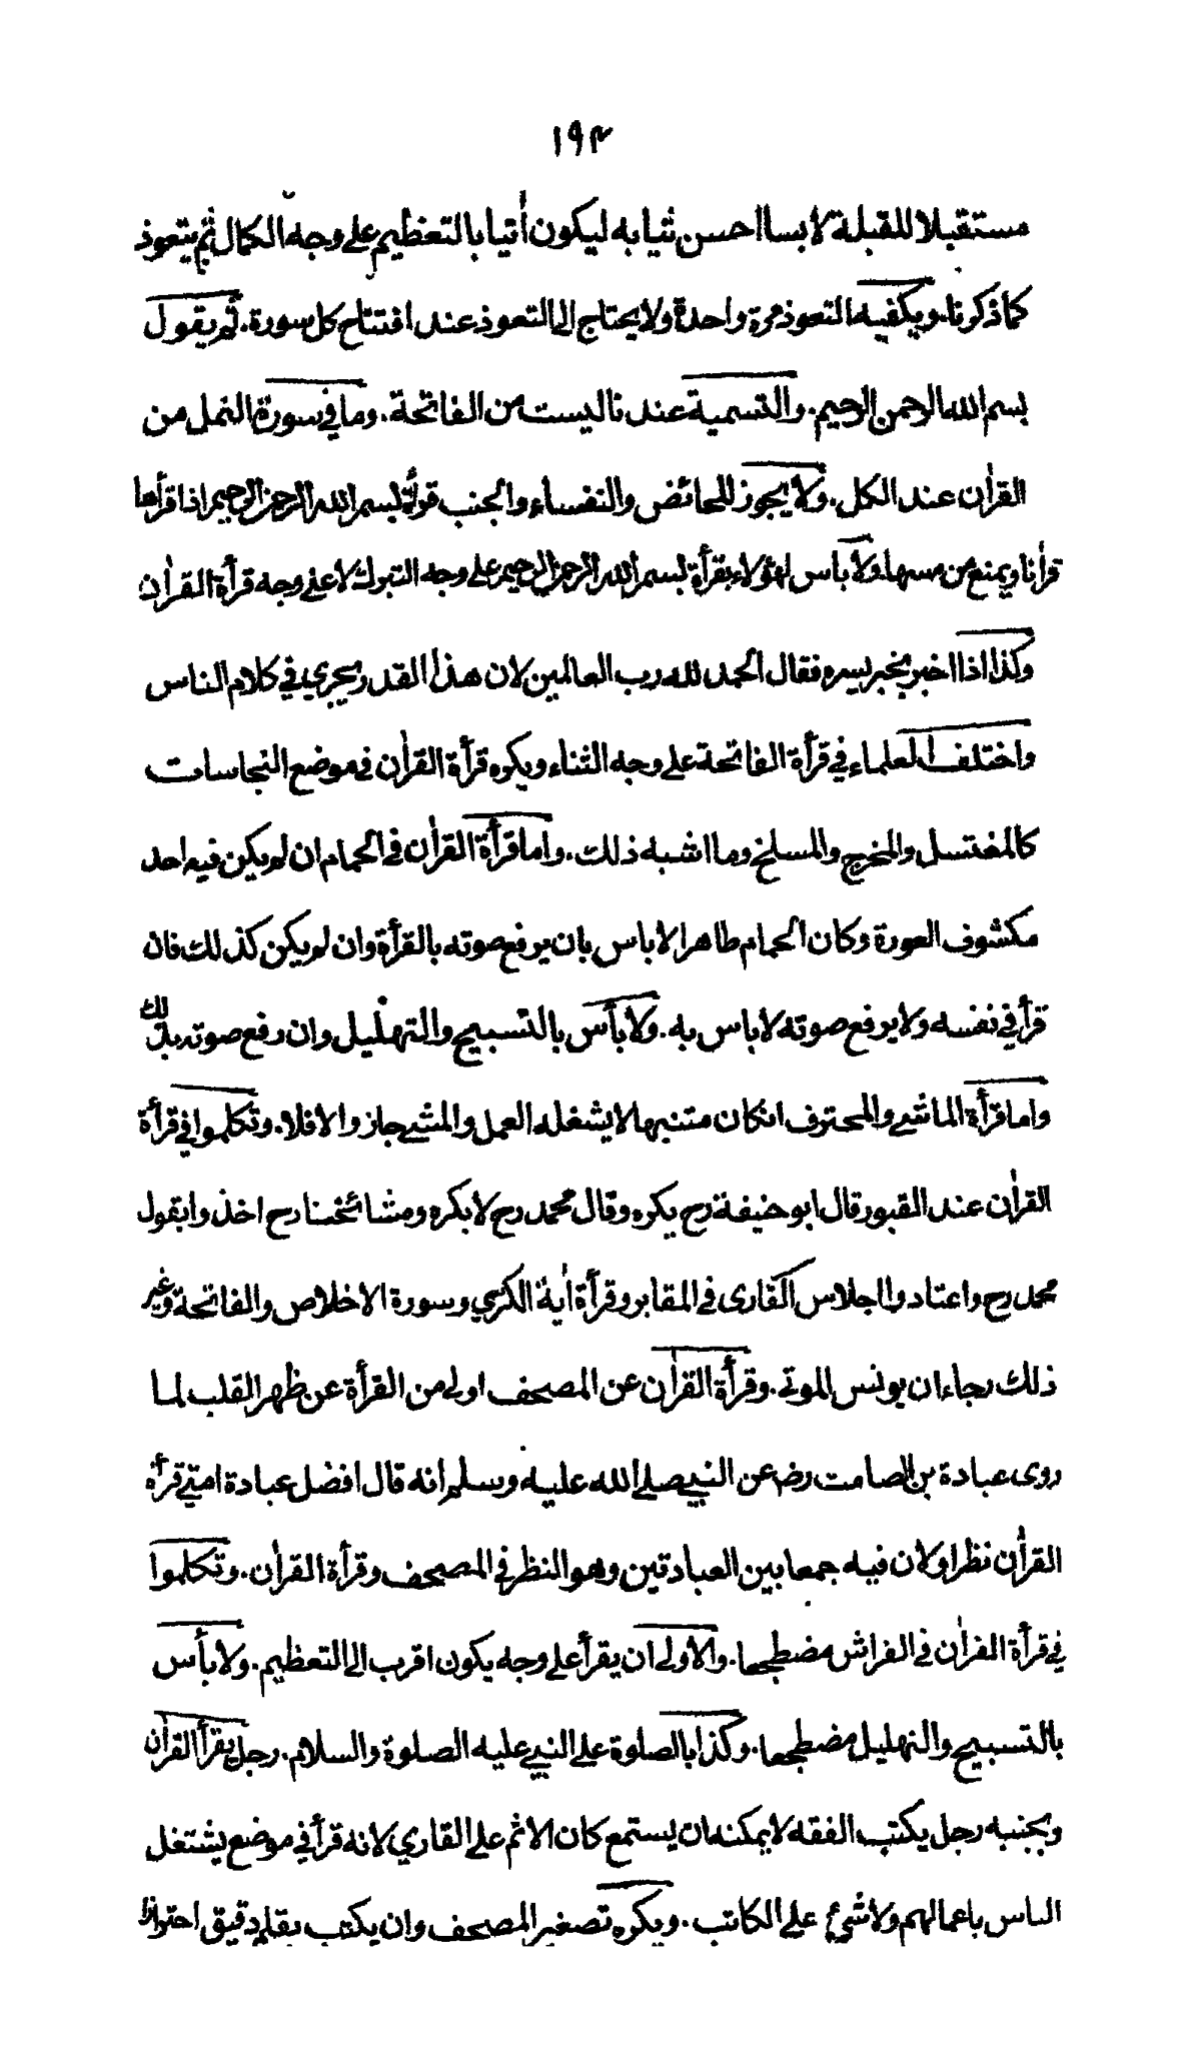 ۱۹۴
مستقبلا للقبلة لابسا احسن ثيابه ليكون أتيا بالتعظيم على وجه الكمال ثم يتعوذ
كما ذكرنا. ويكفيه التعوذ مرة واحدة ولا يحتاج الى التعوذ عند افتتاح كل سورة. ثم يقول
بسم الله الرحمن الرحيم. والتسمية عندنا ليست من الفاتحة. وما في سورة النمل من
القرأن عند الكل. ولا يجوز للحائض والنفساء والجنب قرأة بسم الله الرحمن الرحيم اذا قرأها
قرأنا ويمنع من مسها. ولا باس لهؤلاء بقرأة بسم الله الرحمن الرحيم على وجه التبرك لا على وجه قرأة القرأن
وكذا اذا اخبر بخبر يسره فقال الحمد لله رب العالمين لان هذا القدر يجري في كلام الناس
واختلف العلماء في قرأة الفاتحة على وجه الثناء ويكره قرأة القرأن في موضع النجاسات
كالمغتسل والمخرج والمسلخ وما اشبه ذلك. واما قرأة القرأن في الحمام ان لم يكن فيه احد
مكشوف العورة وكان الحمام طاهرا لا باس بان يرفع صوته بالقرأة وان لم يكن كذلك فان
قرأ في نفسه ولا يرفع صوته لا باس به. ولا بأس بالتسبيح والتهليل وان رفع صوته بذلك
واما قرأة الماشي والمحترف انكان متنبها لا يشغله العمل والمشي جاز والا فلا. وتكلموا في قرأة
القرأن عند القبور قال ابو حنيفة رح يكره وقال محمد رح لا يكره ومشائخنا رح اخذوا بقول
محمد رح واعتادوا اجلاس القارى في المقابر وقرأة أية الكرسي وسورة الاخلاص والفاتحة وغير
ذلك رجاء ان يونس الموتى. وقرأة القرأن عن المصحف اولى من القرأة عن ظهر القلب لما
روى عبادة بن الصامت رضـ عن النبي صلى الله عليه وسلم انه قال افضل عبادة امتي قرأة
القرأن نظرا ولان فيه جمعا بين العبادتين وهو النظر في المصحف وقرأة القرأن. وتكلموا
في قرأة القرأن في الفراش مضطجعا. والاولى ان يقرأ على وجه يكون اقرب الى التعظيم. ولا بأس
بالتسبيح والتهليل مضطجعا. وكذا بالصلوة على النبي عليه الصلوة والسلام. رجل يقرأ القرأن
وبجنبه رجل يكتب الفقه لا يمكنه ان يستمع كان الاثم على القاري لانه قرأ في موضع يشتغل
الناس باعمالهم ولا شيء على الكاتب. ويكره تصغير المصحف وان يكتب بقلم دقيق احترازا